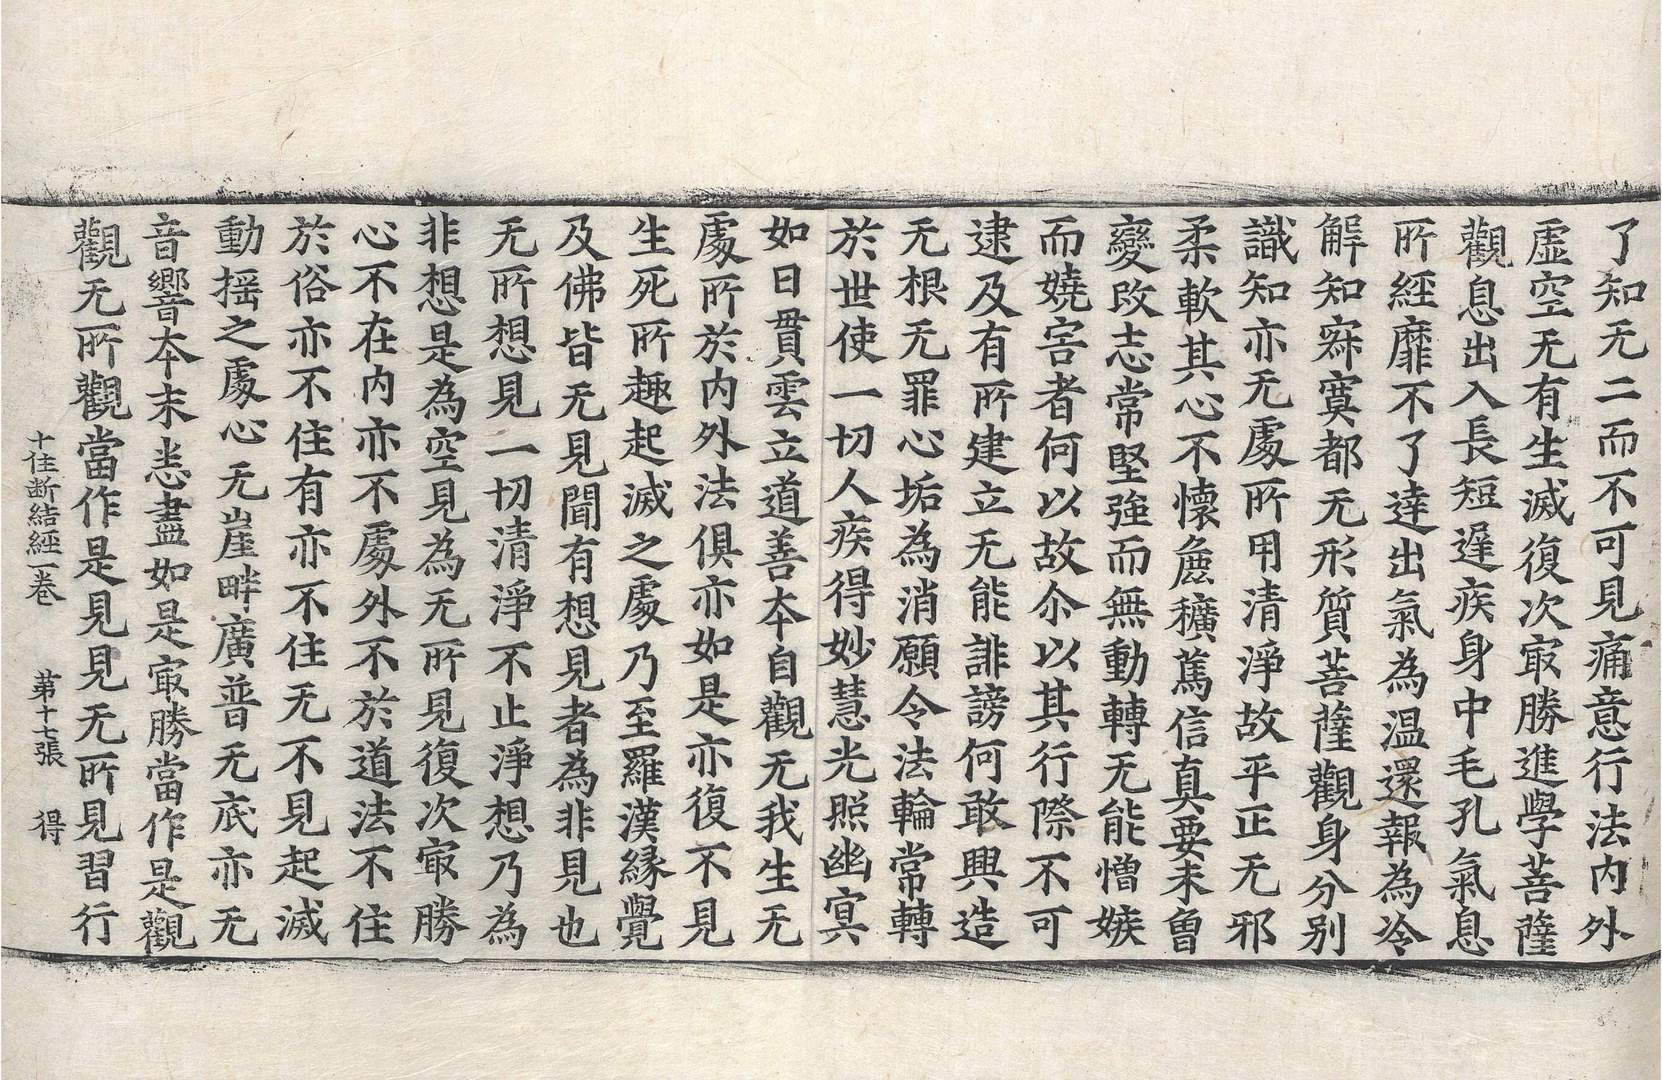 了知无二而不可見痛意行法內外
虛空无有生滅復次㝡勝進學菩薩
觀息出入長短遲疾身中毛孔氣息
所經靡不了達出氣為温還報為冷
解知寂寞都无形質菩薩觀身分別
識知亦无處所用清淨故平正无邪
柔軟其心不懷麁穬篤信真要未曾
變改志常堅強而無動轉无能憎嫉
而嬈害者何以故尒以其行際不可
逮及有所建立无能誹謗何敢興造
无根无罪心垢為消願令法輪常轉
於世使一切人疾得妙慧光照幽冥
如日貫雲立道善本自觀无我生无
處所於內外法俱亦如是亦復不見
生死所趣起滅之處乃至羅漢緣覺
及佛皆无見聞有想見者為非見也
无所想見一切清淨不止淨想乃為
非想是為空見為无所見復次㝡勝
心不在内亦不處外不於道法不住
於俗亦不住有亦不住无不見起滅
動搖之處心无崖畔廣普无底亦无
音響本末悉盡如是㝡勝當作是觀
觀无所觀當作是見見无所見習行
十住断結經一卷 第十七張 得